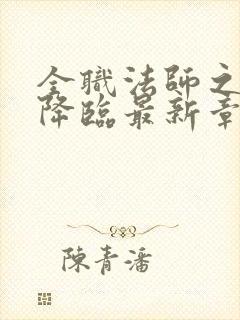 全職法師之
降臨最新章
陳青潘